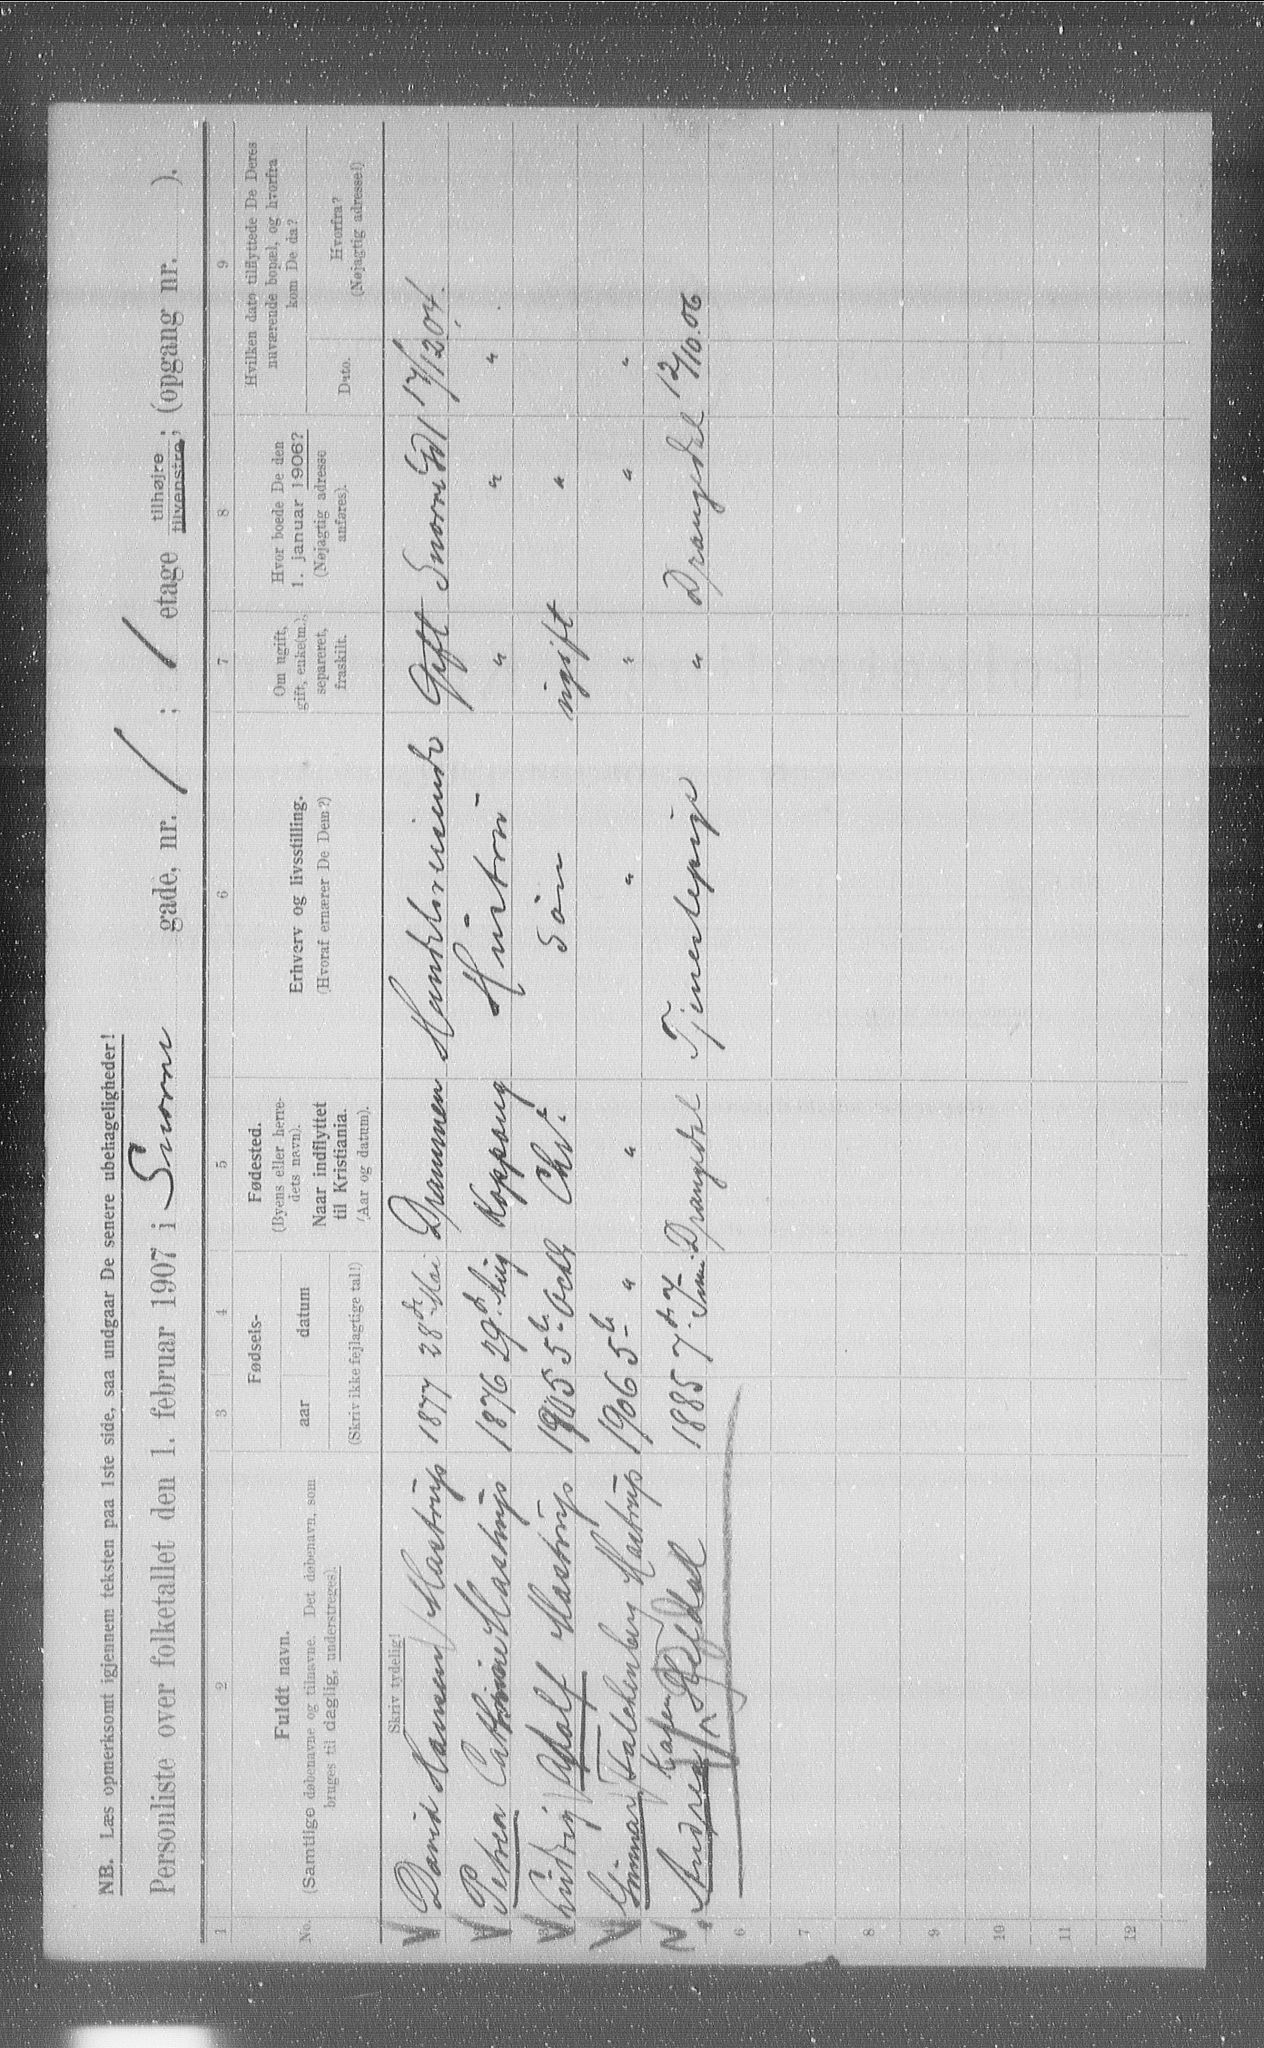 NB. Læs opmerksomt igjennem teksten paa 1ste side, saa undgaar De senere ubehageligheder!
Personliste over folketallet den 1. februar 1907 i Snorre gade, nr. 1; 1 etage tilhøjre tilvenstre; (opgang nr. ).
1 2 3 4 5 6 7 8 9
No.
Fuldt navn.
(Samtlige døbenavne og tilnavne. Det døbenavn, som
bruges til daglig, understreges).
Skriv tydelig!
Fødsels-
aar datum
(Skriv ikke fejlagtige tal!)
Fødested.
(Byens eller herre-
dets navn).
Naar indflyttet
til Kristiania.
(Aar og datum).
Erhverv og livsstilling.
(Hvoraf ernærer De Dem?)
Om ugift,
gift, enke(m.),
separeret,
fraskilt.
Hvor boede De den
1. januar 1906?
(Nøjagtig adresse
anføres).
Hvilken dato tilflyttede De Deres
nuværende bopæl, og hvorfra
kom De da?
Dato.
Hvorfra?
(Nøjagtig adresse!)
David Hansen Hastrup 1877 28de Mai Drammen Handelsreisende Gift Snorre Gd 1 17/12 04
Petrea Cathrine Hastrup 1876 29d. Aug Koppang Hustru " " "
3 Ludvig Adolf Hastrup 1905 5te Octb Chr. Søn ugift "
Gunnar Falckenberg Hastrup 1906 5te " " " " " "
Andrea Karen Hejdal 1885 7de Juni Drangedal Tjenestepige " Drangedal 12/10.06
6
7
8
9
10
11
12